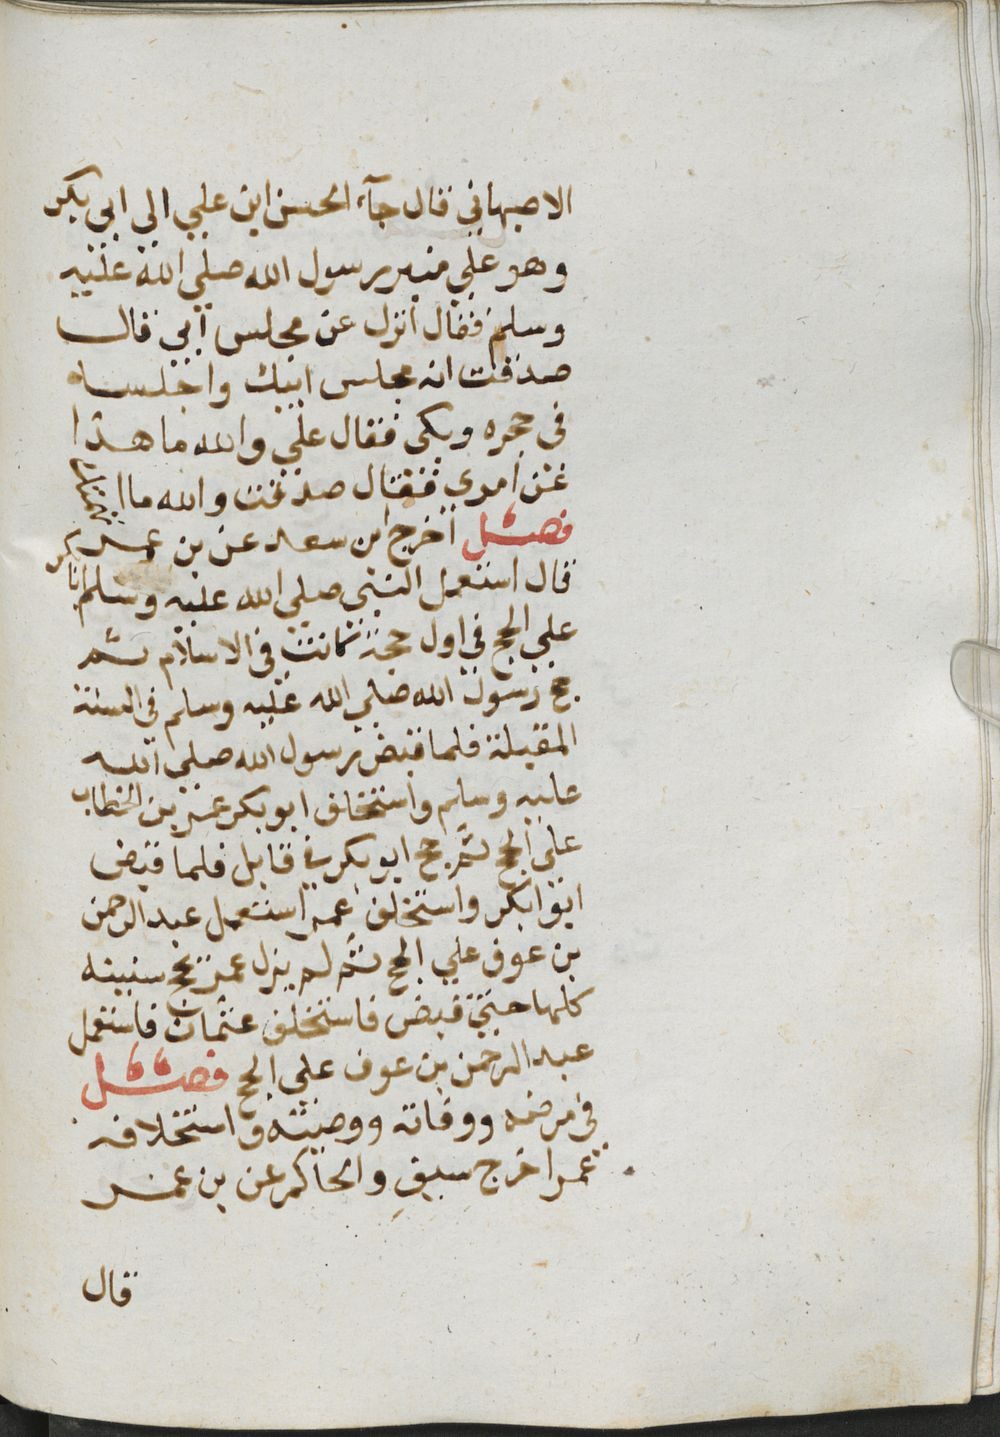 الاصبهاني قال جآء الحسن ابن علي الى ابي بكر
وهو علي منبر رسول الله صلي الله عليه
وسلم فقال أنزل عن مجلس أبي قال
صدقت انه مجلس ابيك واجلسه
في حجره وبكى فقال علي والله ما هذا
عن امري فقال صدقت والله ما اتهمتك
فصل اخرج ابن سعد عن بن عمر
قال استعمل النبي صلي الله عليه وسلم ابا بكر
علي الحج في اول حجة كانت في الاسلام ثم
حج رسول الله صلي الله عليه وسلم في السنة
المقبلة فلما قبض رسول الله صلي الله
عليه وسلم واستخلف ابو بكر عمر بن الخطاب
علي الحج ثم حج ابو بكر في قابل فلما قبض
ابو ابكر واستخلف عمر استعمل عبد الرحمن
بن عوف علي الحج ثم لم يزل عمر يحج سنينه
كلها حتي قبض فاستخلف عثمان فاستعمل
عبد الرحمن بن عوف علي الحج فصل
في مرضه ووفاته ووصيته واستخلافه
عمر اخرج سيف والحاكم عن بن عمر
قال